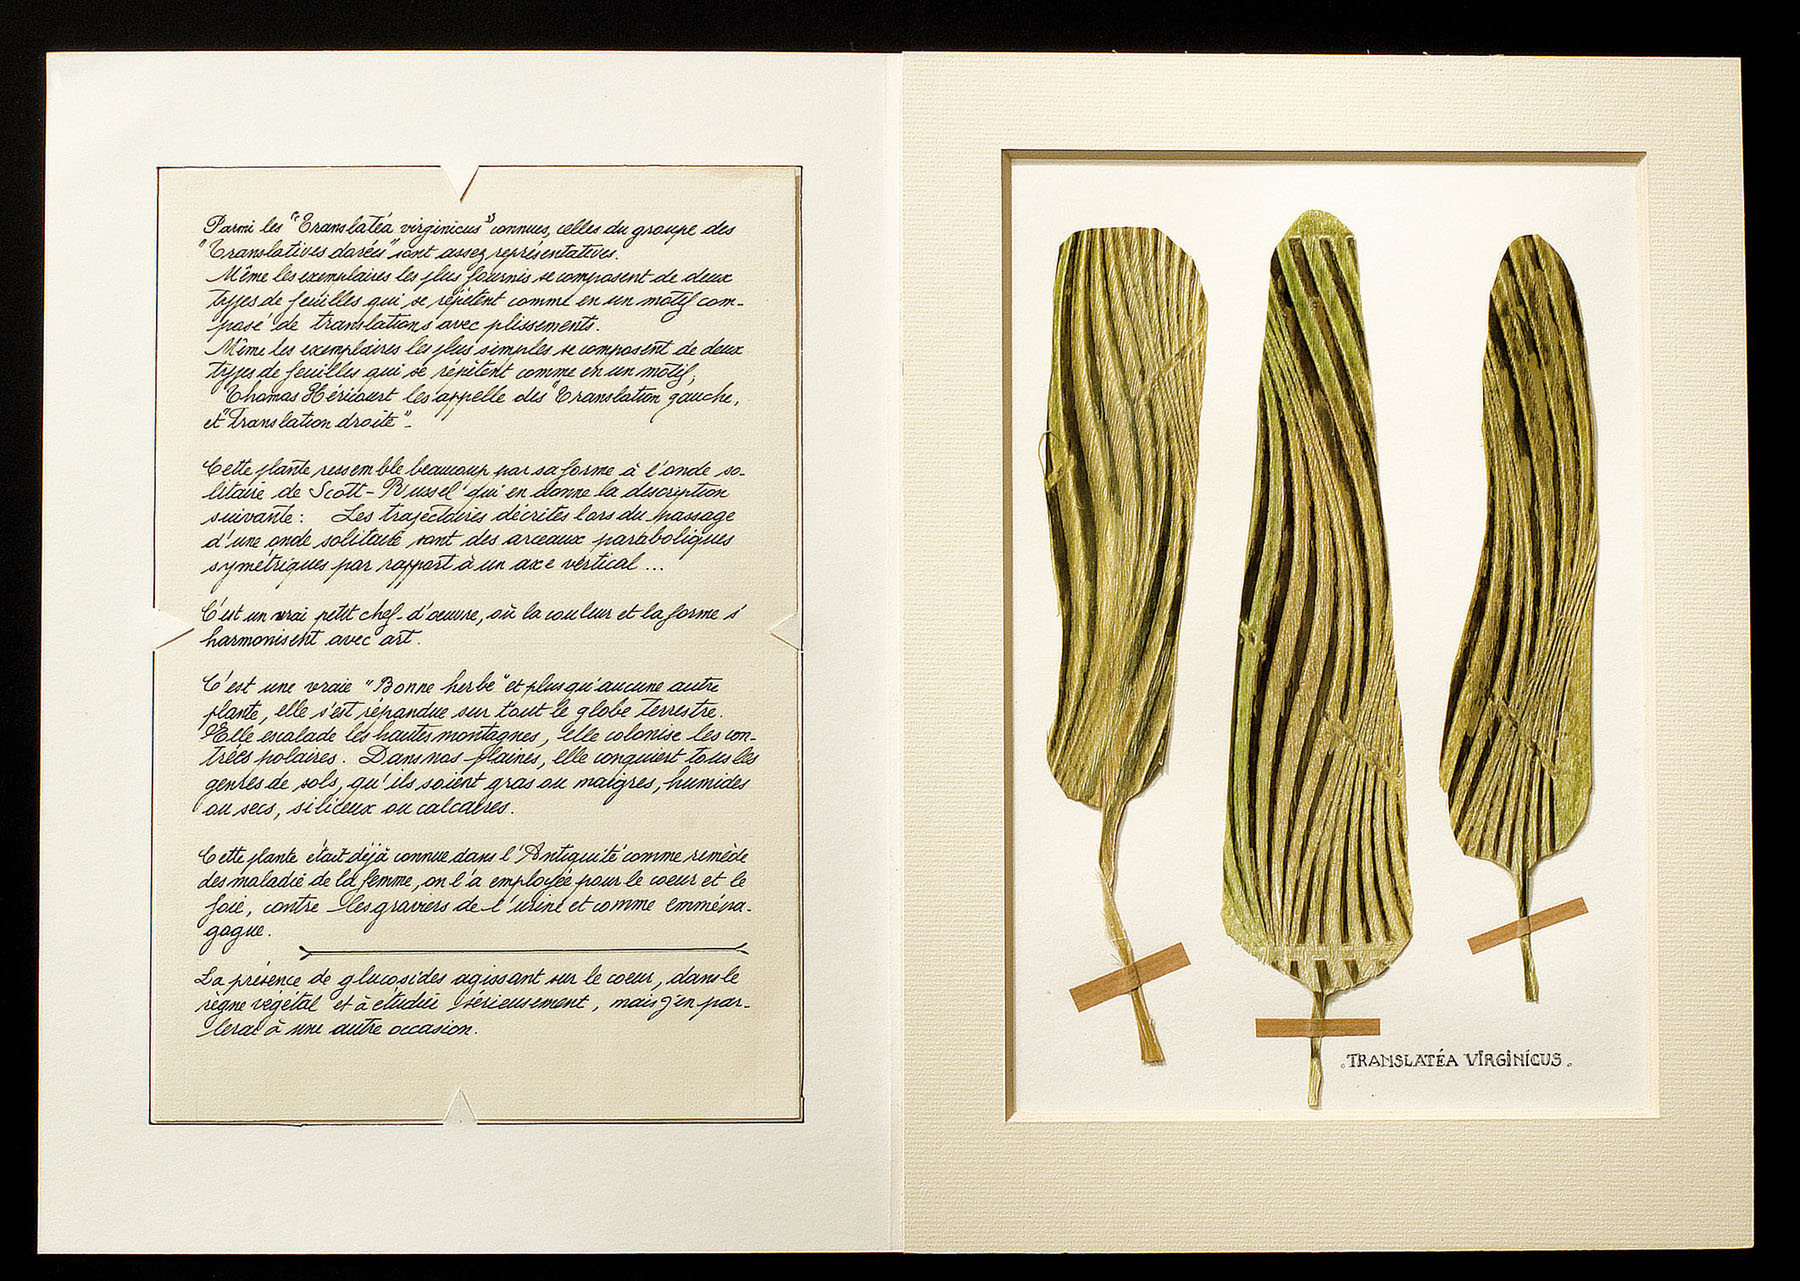 Parmi les "Translatéa virginicus" connues, celles du groupe des
"Translatives dorées" sont assez représentatives.
Même les exemplaires les plus fournis se composent de deux
types de feuilles qui se répètent comme en un motif com-
posé de translations avec plissements.
Même les exemplaires les plus simples se composent de deux
types de feuilles qui se répètent comme en un motif;
Thomas Héricourt les appelle des "Translation gauche,
et "Translation droite"_
Cette plante ressemble beaucoup par sa forme à l'onde so-
litaire de Scott-Russel qui en donne la description
suivante: Les trajectoires décrites lors du passage
d'une onde solitaire sont des arceaux paraboliques
symétriques par rapport à un axe vertical...
C'est un vrai petit chef-d'oeuvre, où la couleur et la forme s'
harmonisent avec art.
C'est une vraie "Bonne herbe" et plus qu'aucune autre
plante, elle s'est répandue sur tout le globe terrestre.
Elle escalade les hautes montagnes, elle colonise les con-
trées polaires. Dans nos plaines, elle conquiert tous les
genres de sols, qu'ils soient gras ou maigres, humides
ou secs, siliceux ou calcaires.
Cette plante était déjà connue dans l'Antiquité comme remède
des maladie de la femme, on l'a employée pour le coeur et le
foie, contre les graviers de l'urine et comme emména-
gogue.
La présence de glucosides agissant sur le coeur, dans le
règne végétal et à étudier sérieusement, mais j'en par-
lerai à une autre occasion.
.TRANSLATÉA VIRGINICUS.